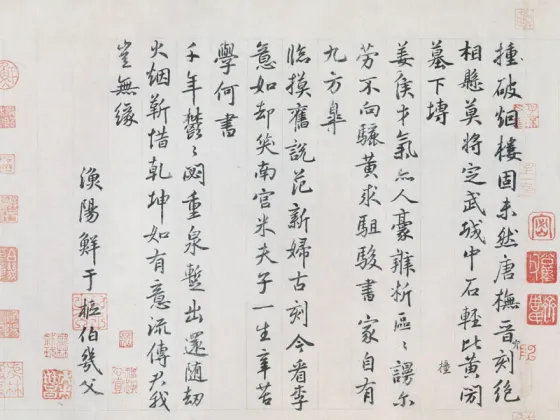 捶破烟樓固未然唐撫晉刻絕
相懸莫將定武城中石輕比黃閍
墓下塼
撞
姜侯才氣亦人豪辨析區〻謾尔
勞不向驪黃求駔駿書家自有
九方皋
臨摸舊說范新婦古刻今看李
意如却笑南宫米夫子一生辛苦
學何書
千年鬱〻閟重泉暫出還随劫
火烟靳惜乾坤如有意流傳君我
豈無緣
漁陽鮮于樞伯幾父